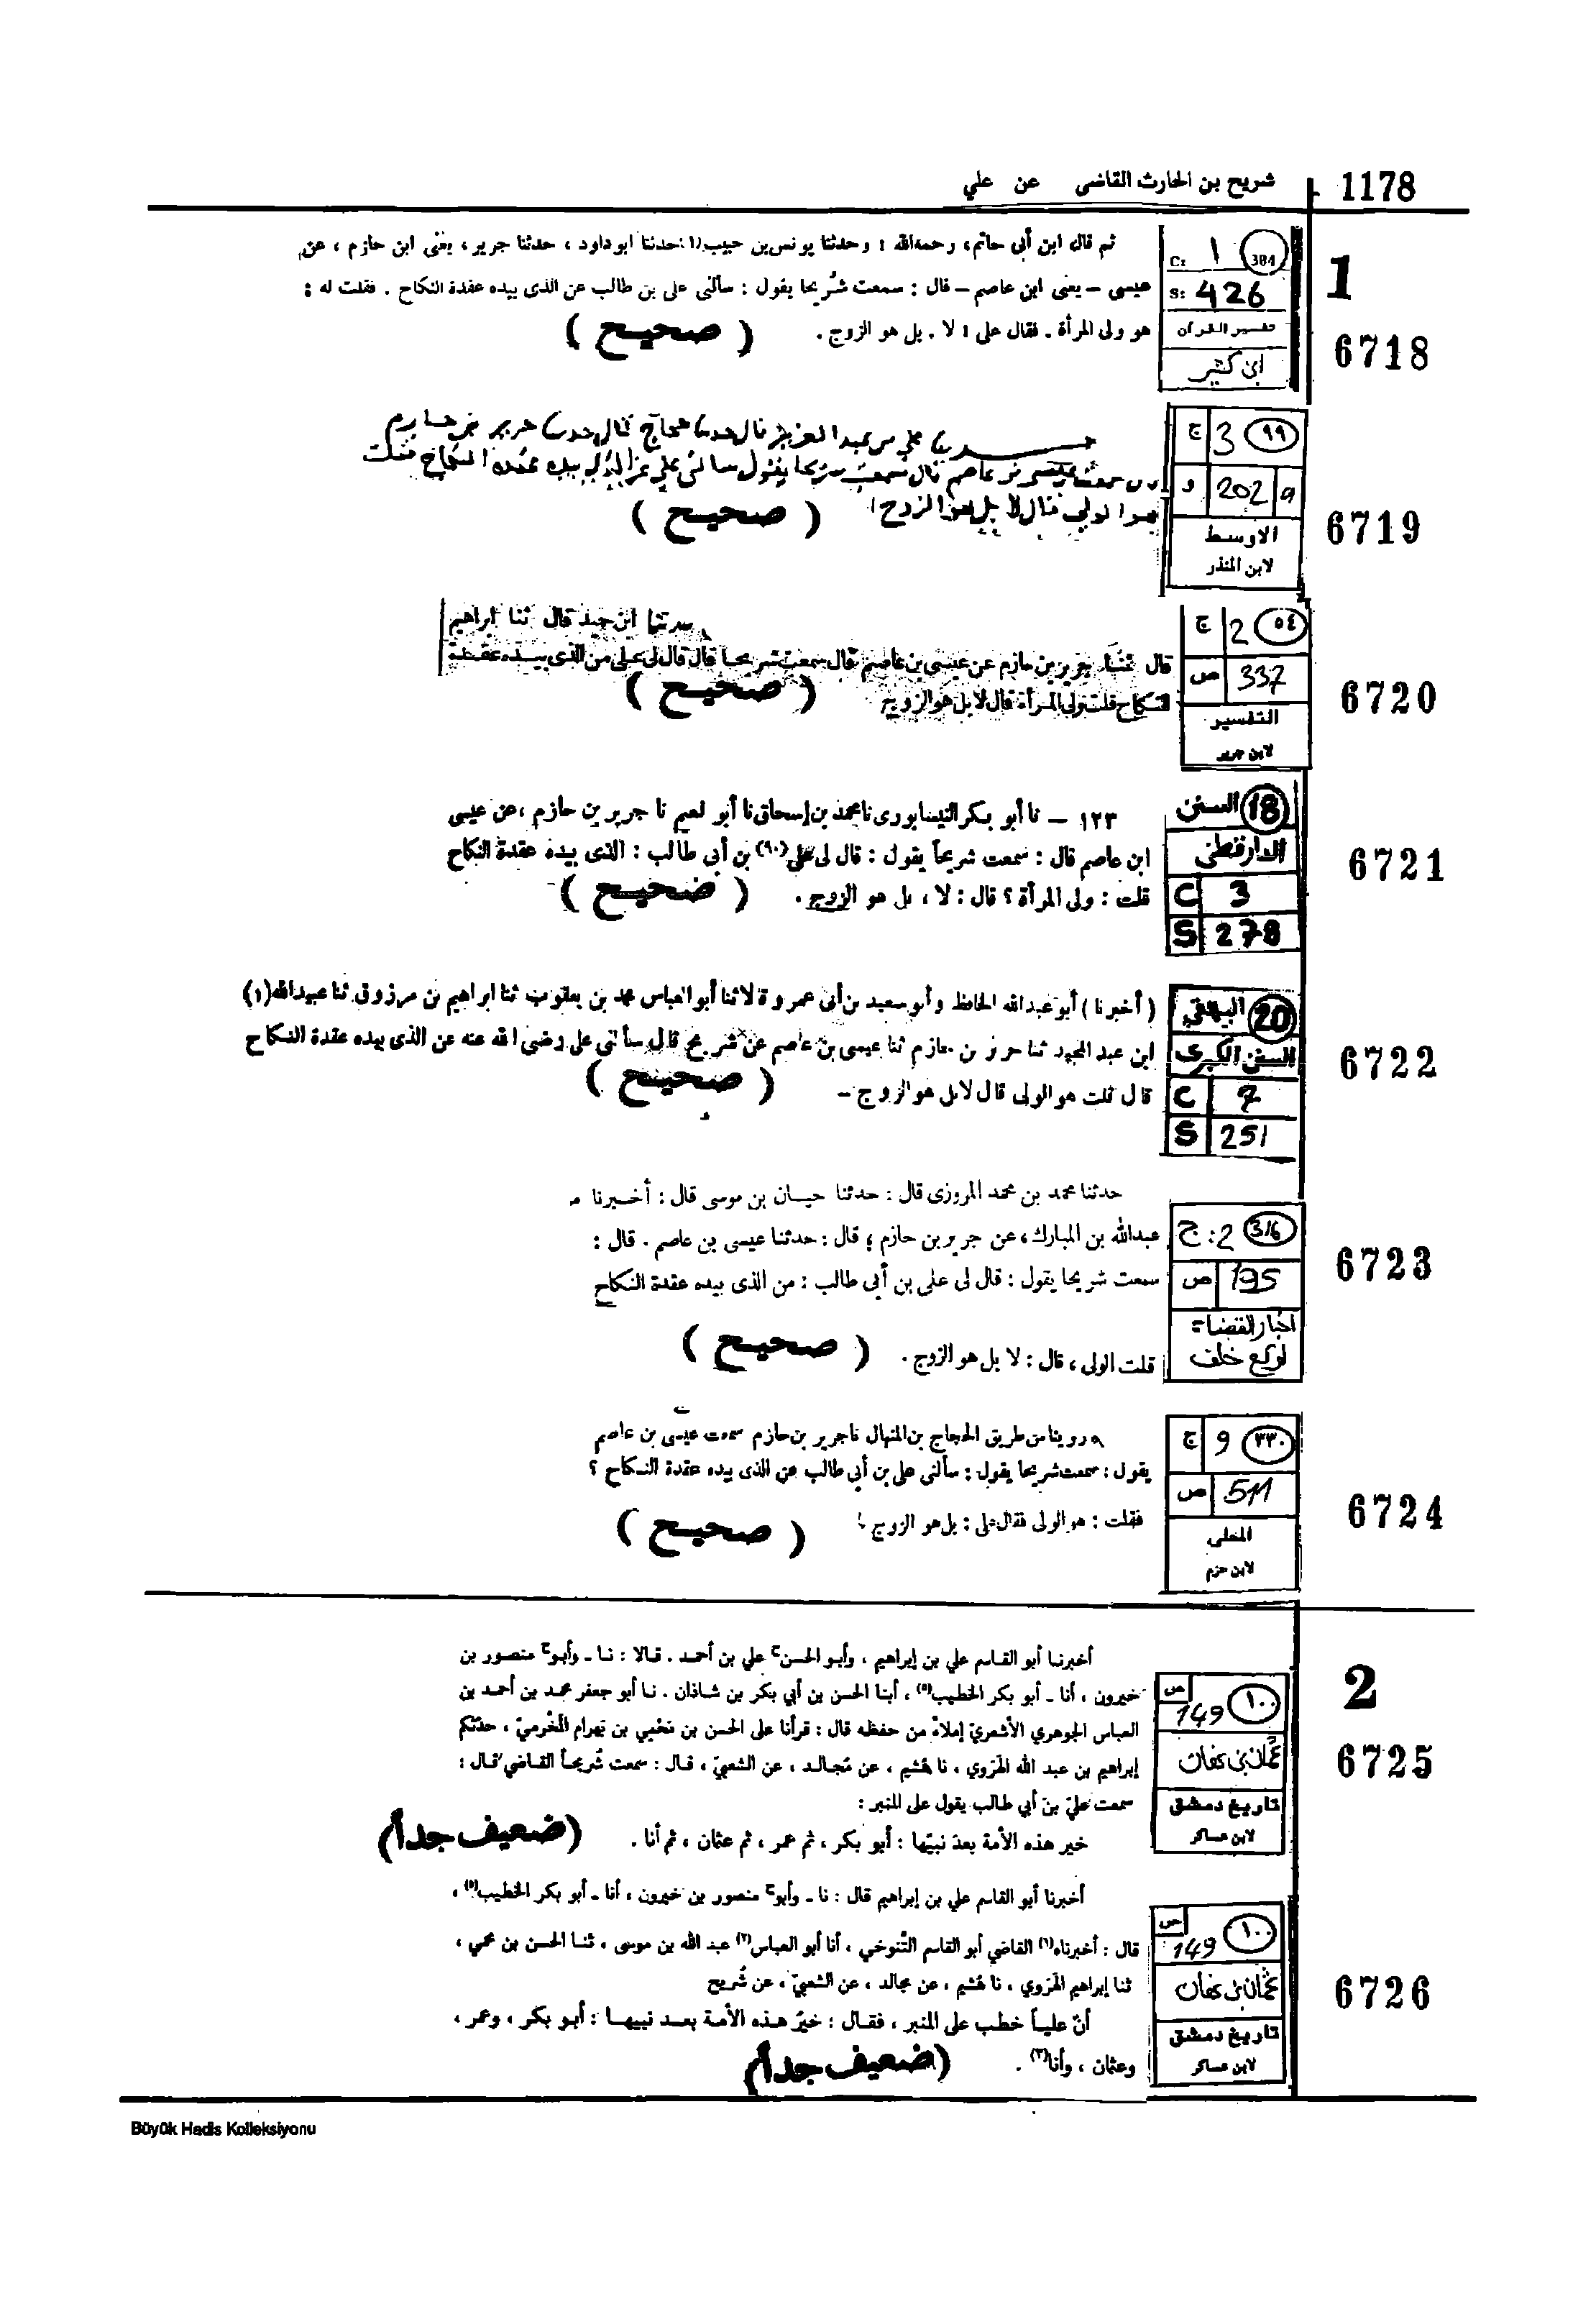 1178 شريح بن الحارث القاضى عن علي
1
6718
C: ١ 381
S: 426
تفسير القرآن
ابن كثير
ثم قال ابن أبى حاتم، رحمه الله : وحدثنا يونس بن حبيب(١)حدثنا ابو داود ، حدثنا جرير ، يعنى ابن حازم ، عن
عيسى – يعنى ابن عاصم – قال : سمعت شُريحا يقول : سألنى على بن طالب عن الذى بيده عقدة النكاح . فقلت له :
هو ولى المرأة . فقال على : لا . بل هو الزوج .
( صحيح )
6719
ج 3 ٩٩
و 202 a
الاوسط
لابن المنذر
علي بن عبد العزيز قال حدثنا حجاج قال حدثنا جرير بن حازم
سمعت عيسى بن عاصم قال سمعت شريحا يقول سألني علي عن الذي بيده عقدة النكاح فقلت
هو الولي فقال لا بل هو الزوج
( صحيح )
6720
ج 2 ٥٤
ص 337
التفسير
لابن جرير
حدثنا ابن حميد قال ثنا ابراهيم
قال ثنا جرير بن حازم عن عيسى بن عاصم قال سمعت شريحا قال قال لى على من الذى بيده عقدة
النكاح قلت ولى المرأة قال لا بل هو الزوج
( صحيح )
6721
السنن 18
الدارقطني
C 3
S 278
١٢٣ – نا أبو بكر النيسابورى نا محمد بن إسحاق نا أبو نعيم نا جرير بن حازم ، عن عيسى
ابن عاصم قال : سمعت شريحاً يقول : قال لى على(٩٠) بن أبى طالب : الذى بيده عقدة النكاح
قلت : ولى المرأة ؟ قال : لا ، بل هو الزوج .
( صحيح )
6722
البيهقي 20
السنن الكبرى
C 7
S 251
( أخبرنا ) أبو عبدالله الحافظ وأبو سعيد بن أبى عمرو قالا ثنا أبو العباس محمد بن يعقوب ثنا ابراهيم بن مرزوق ثنا عبيدالله(١)
ابن عبد المجيد ثنا جرير بن حازم ثنا عيسى بن عاصم عن شريح قال سألنى على رضى الله عنه عن الذى بيده عقدة النكاح
قال قلت هو الولى قال لا بل هو الزوج –
( صحيح )
6723
ج: 2 316
ص 195
اخبار القضاة
لوكيع خلف
حدثنا محمد بن محمد المروزى قال : حدثنا حيان بن موسى قال : أخبرنا
عبدالله بن المبارك ، عن جرير بن حازم ؛ قال : حدثنا عيسى بن عاصم . قال :
سمعت شريحا يقول : قال لى على بن أبى طالب : من الذى بيده عقدة النكاح
قلت الولى ، قال : لا بل هو الزوج .
( صحيح )
6724
ج 9 ٣٣٠
ص 511
المحلى
لابن حزم
وروينا من طريق الحجاج بن المنهال نا جرير بن حازم سمعت عيسى بن عاصم
يقول : سمعت شريحا يقول : سألنى على بن أبى طالب عن الذى بيده عقدة النكاح ؟
فقلت : هو الولى فقال على : بل هو الزوج
( صحيح )
2
6725
ص 149 ١٠٠
عثمان بن عفان
تاريخ دمشق
لابن عساكر
أخبرنا أبو القاسم علي بن إبراهيم ، وأبو الحسن ح علي بن أحمد . قالا : نا ـ وأبو ح منصور بن
خيرون ، أنا ـ أبو بكر الخطيب(٥) ، أبنا الحسن بن أبي بكر بن شاذان . نا أبو جعفر محمد بن أحمد بن
العباس الجوهري الأشعريّ إملاءً من حفظه قال : قرأنا على الحسن بن يَحْيي بن بَهرام المَخْرميّ ، حدثكم
إبراهيم بن عبد الله الهَرَوي ، نا هُشيم ، عن مُجالد ، عن الشعبيّ ، قال : سمعت شُريحاً القاضي قال :
سمعت عليّ بن أبي طالب يقول على المنبر :
خير هذه الأمة بعدَ نبيّها : أبو بكر ، ثم عمر ، ثم عثمان ، ثم أنا .
(ضعيف جداً)
6726
ص 149 ١٠٠
عثمان بن عفان
تاريخ دمشق
لابن عساكر
أخبرنا أبو القاسم علي بن إبراهيم قال : نا ـ وأبو ح منصور بن خيرون ، أنا ـ أبو بكر الخطيب(٥) ،
قال : أخبرناه(٦) القاضي أبو القاسم التَّنوخي ، أنا أبو العباس(٢) عبد الله بن موسى ، ثنا الحسن بن يحيى ،
ثنا إبراهيم الهَرَوي ، نا هُشيم ، عن مجالد ، عن الشعبيّ ، عن شُريح
أنّ علياً خطب على المنبر ، فقال : خيرُ هذه الأمة بعد نبيها : أبو بكر ، وعمر ،
وعثمان ، وأنا(٣) .
(ضعيف جداً)
Büyük Hadis Kolleksiyonu